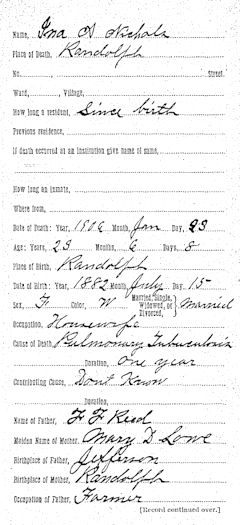 Name, Ina D Nichols
Place of Death, Randolph
No. Street.
Ward, , Village,
How long a resident, Since birth
Previous residence,
If death occurred at an institution give name of same,
How long an inmate,
Where from,
Date of Death: Year, 1906 Month, Jan Day, 23
Age: Years, 23 Months, 6 Days, 8
Place of Birth, Randolph
Date of Birth: Year, 1882 Month, July Day, 15
Sex, F Color, W Married, Single, Widowed, or Divorced, Married
Occupation, Housewife
Cause of Death, Pulmonary Tuberculosis
Duration, One year
Contributing Cause, Don't Know
Duration,
Name of Father, F F Reed
Maiden Name of Mother, Mary D Lowe
Birthplace of Father, Jefferson
Birthplace of Mother, Randolph
Occupation of Father, Farmer
[Record continued over.]